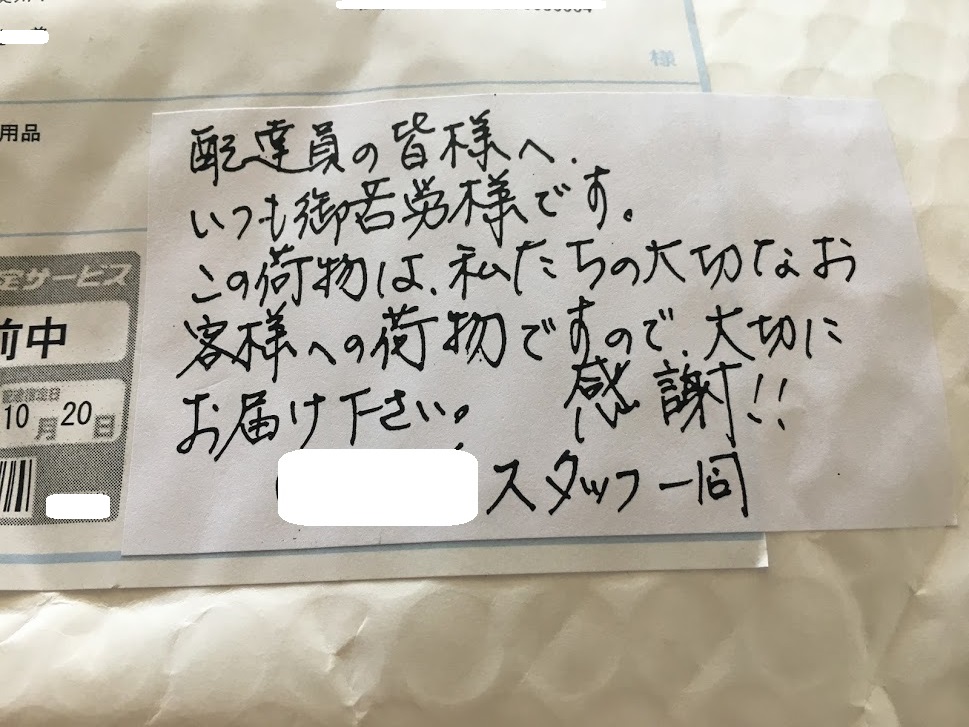 様
用品
配達員の皆様へ.
いつも御苦労様です。
この荷物は、私たちの大切なお
客様への荷物ですので、大切に
お届け下さい。 感謝!!
スタッフ一同
定サービス
前中
配達指定日
10月20日